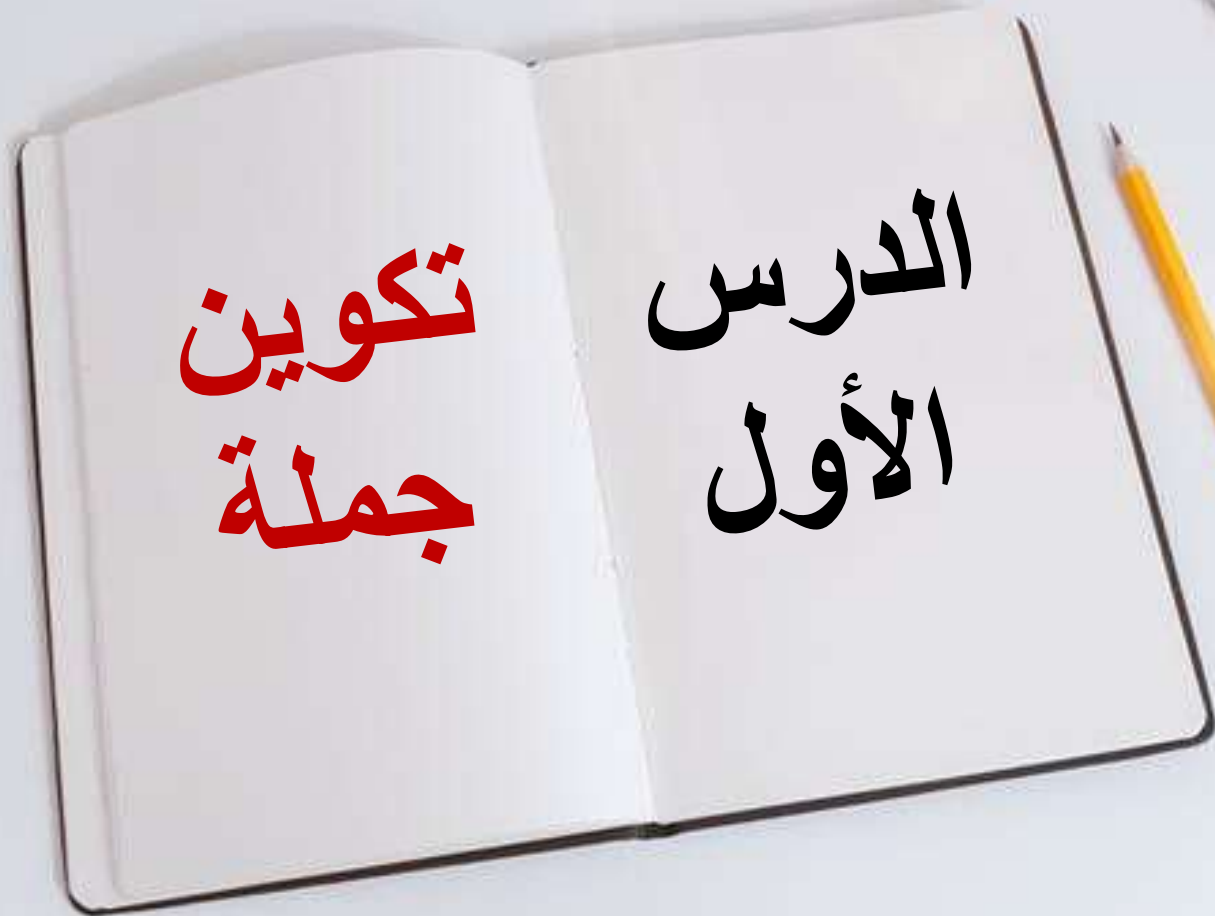 الدرس
الأول
تكوين
جملة